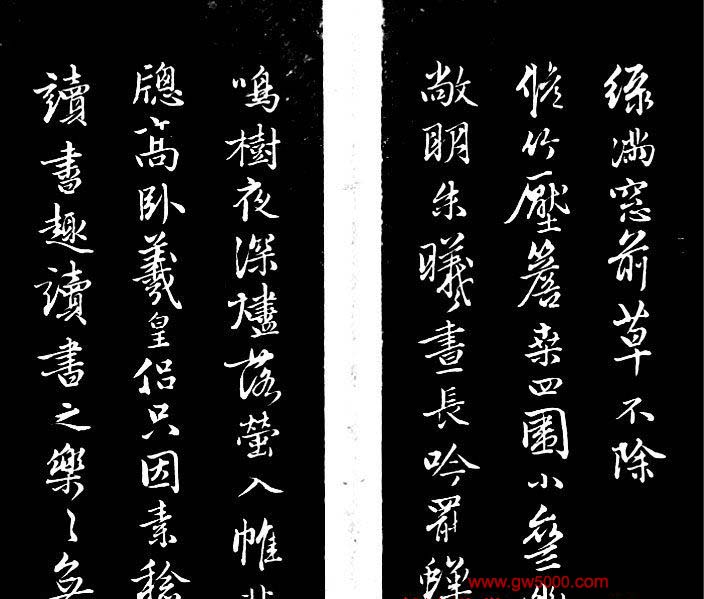 緑滿窓前草不除
脩竹壓簷桑四圍小齋
敞明朱曦晝長吟罷蟬
鳴樹夜深燼落螢入帷
牕高卧羲皇侶只因素稔
讀書趣讀書之樂々無
www.gw5000.com